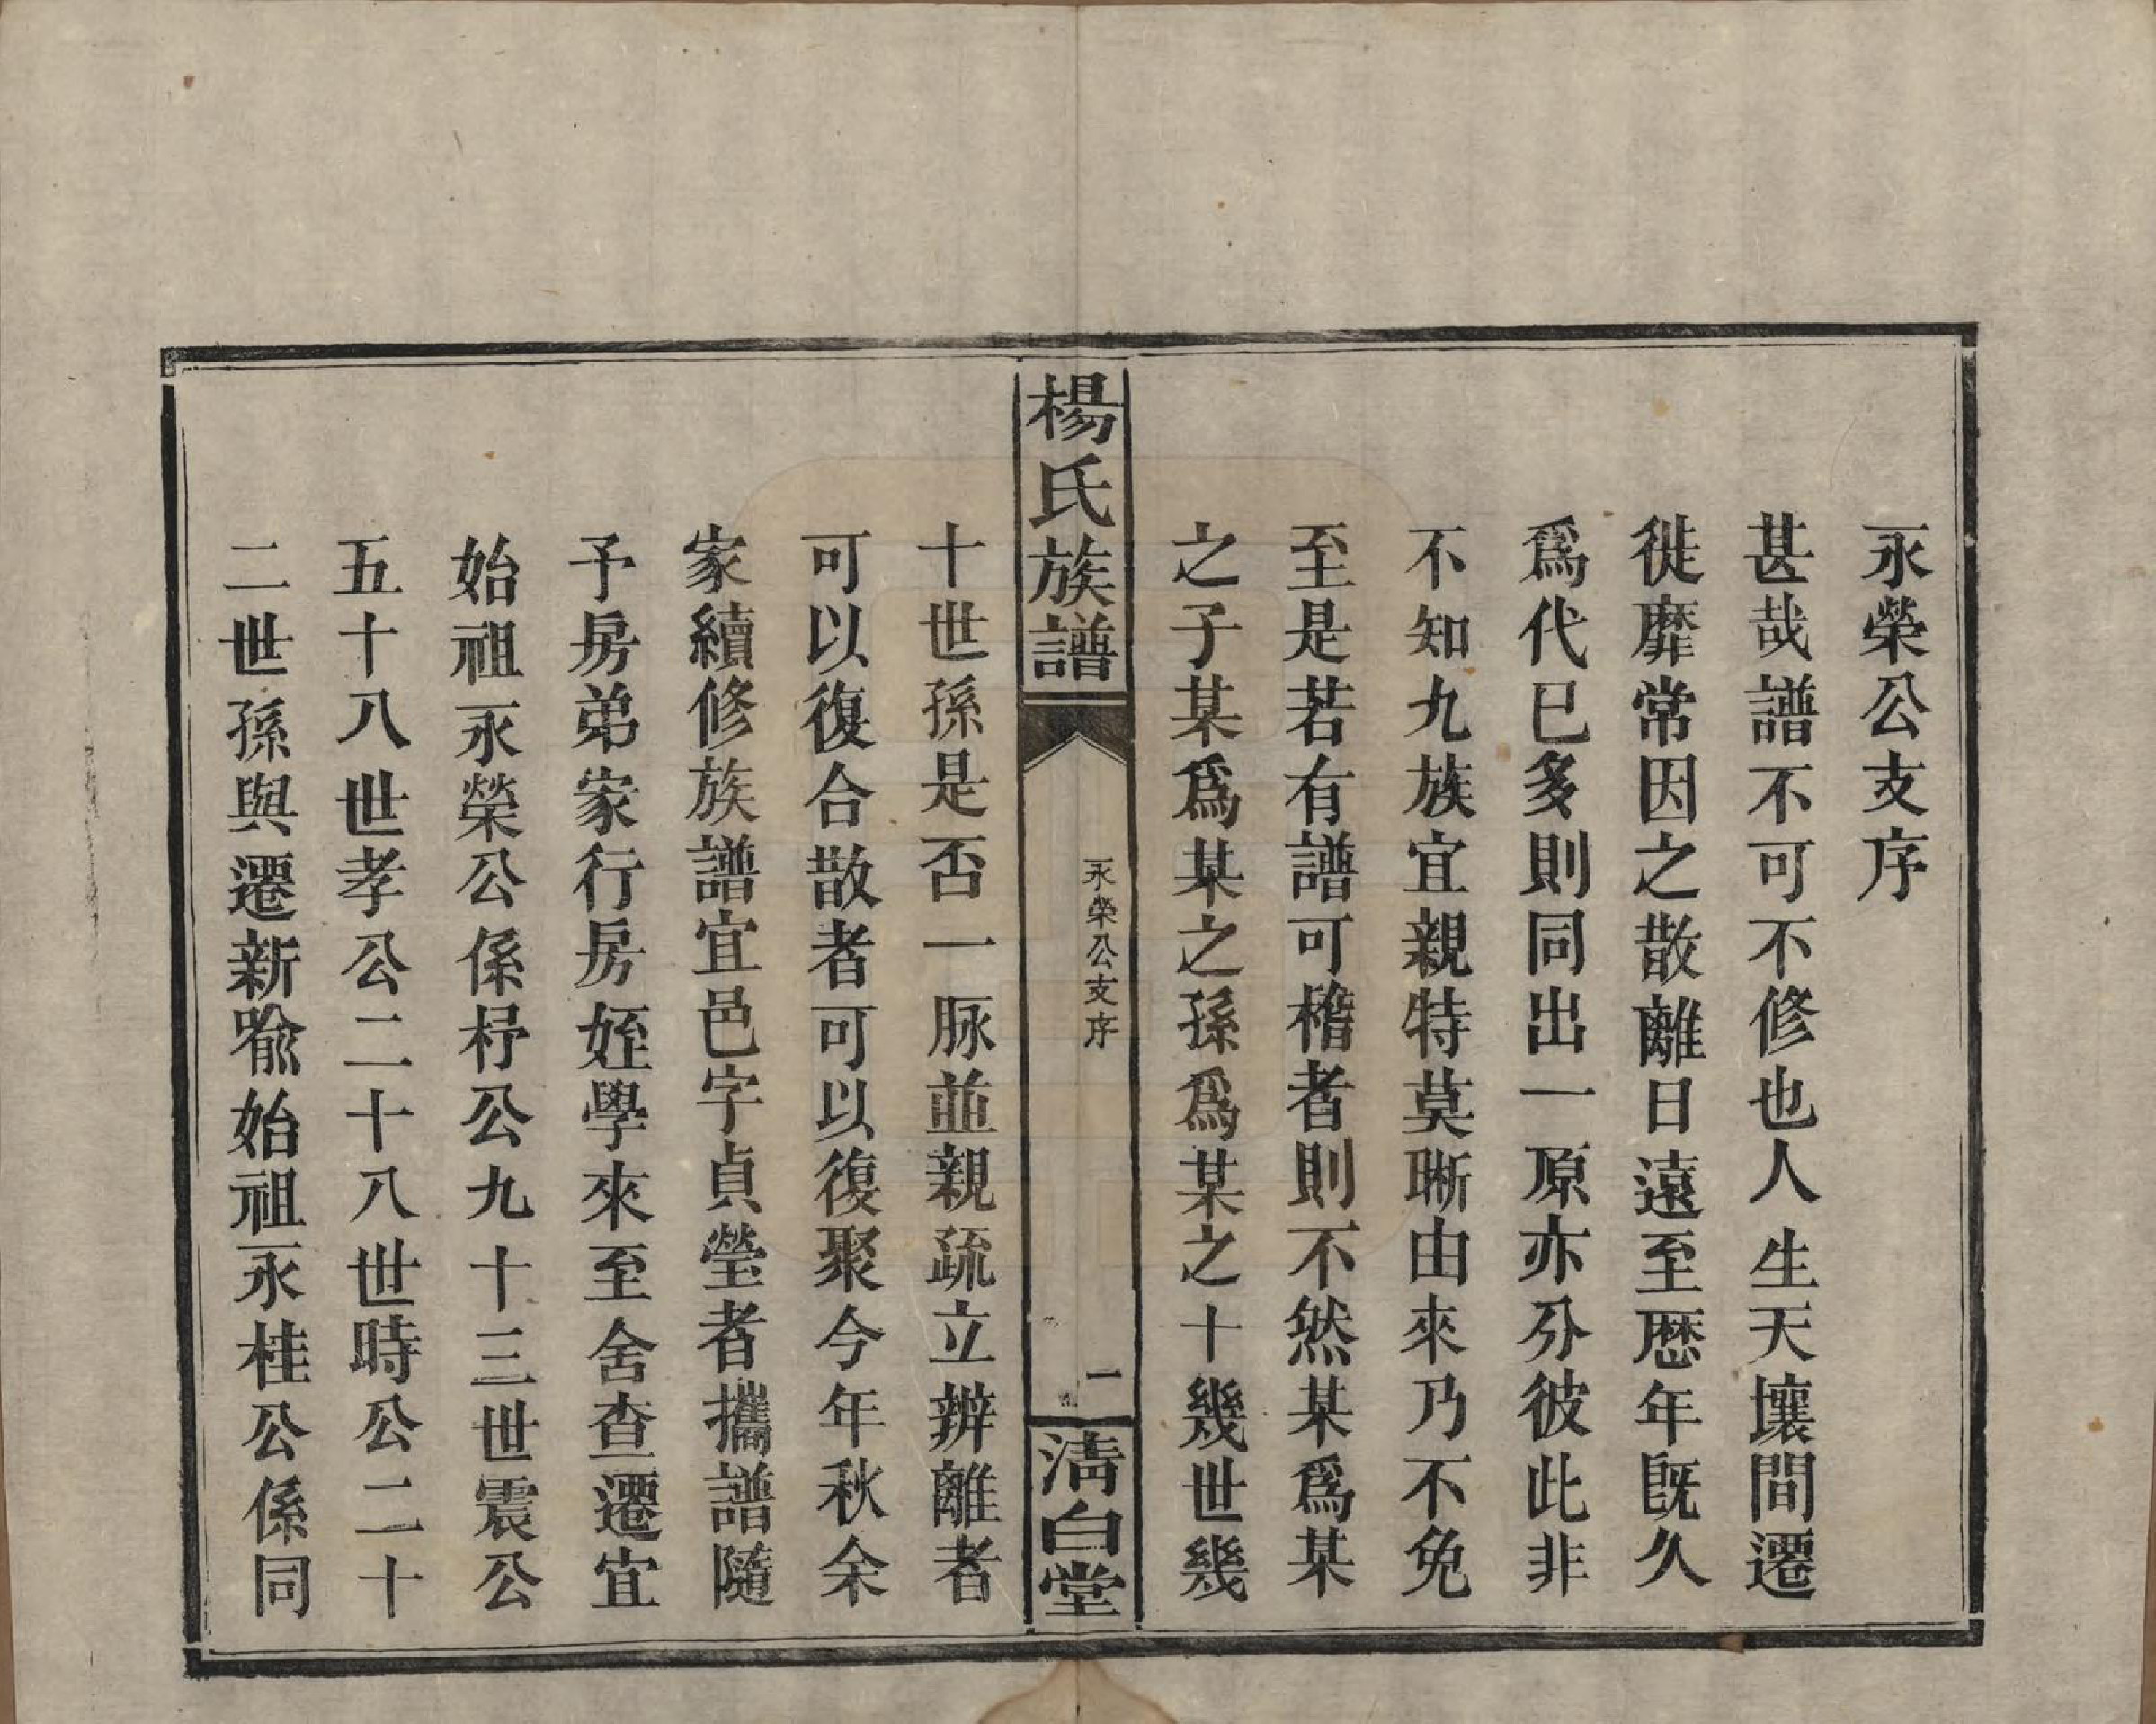 永榮公支序
甚哉譜不可不修也人生天壤間遷
徙靡常因之散離日遠至歷年既久
爲代已多則同出一原亦分彼此非
不知九族宜親特莫晰由來乃不免
至是若有譜可稽者則不然某爲某
之子某爲某之孫爲某之十幾世幾
楊氏族譜
永榮公支序
一
淸白堂
十世孫是否一脉並親疏立辨離者
可以復合散者可以復聚今年秋余
家續修族譜宜邑字貞瑩者攜譜隨
予房弟家行房姪學來至舍查遷宜
始祖永榮公係杼公九十三世震公
五十八世孝公二十八世時公二十
二世孫與遷新喩始祖永桂公係同